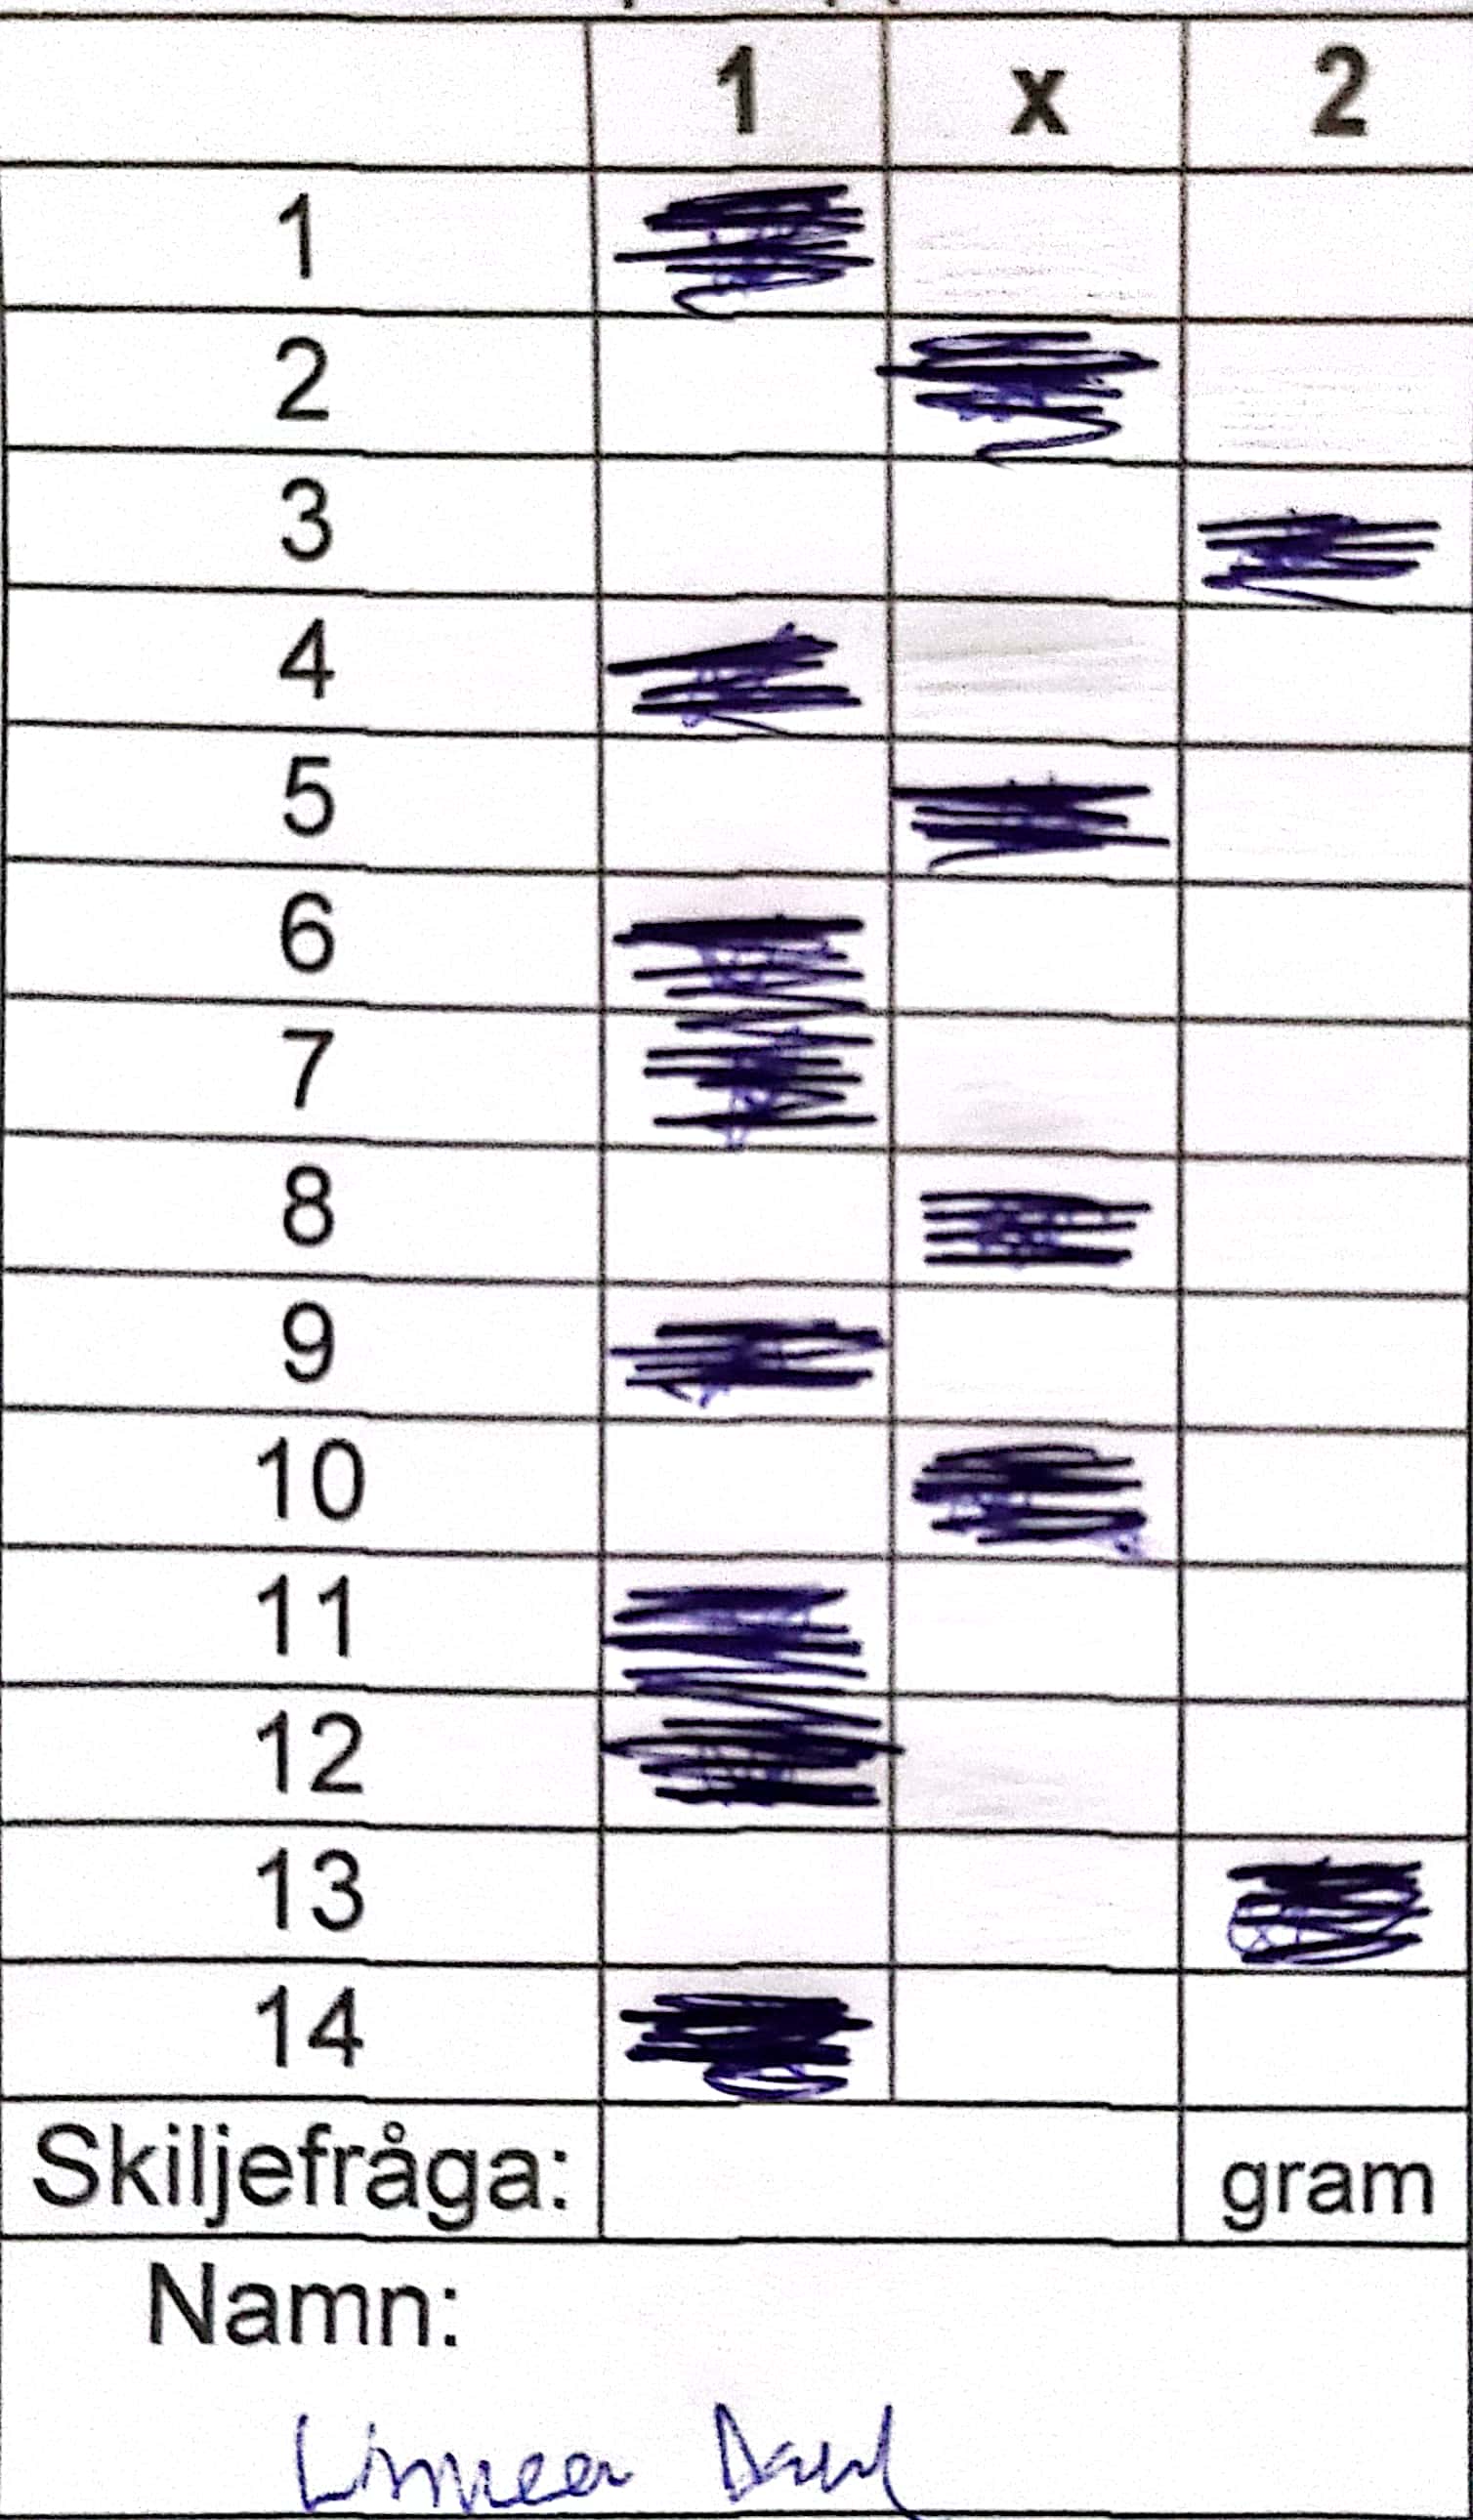 1 x 2
1
2
3
4
5
6
7
8
9
10
11
12
13
14
Skiljefråga: gram
Namn:
Linnea Dahl